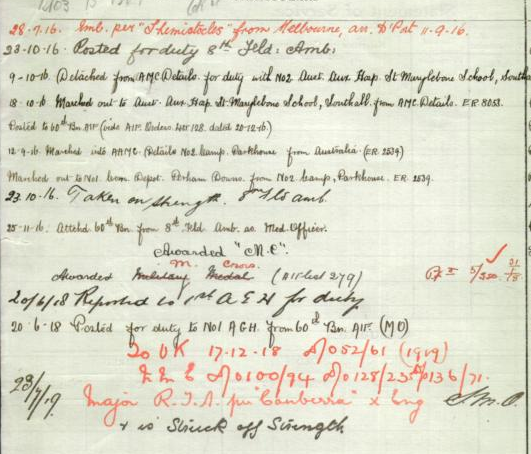 28-7-16. Emb. per "Themistocles" from Melbourne, arr. D'Port 11-9-16.
23-10-16. Posted for duty 8th Fld: Amb:
9-10-16. Detached from AMC Details. for duty with No2 Aust. Aux. Hosp. St Marylebone School, South
18-10-16 Marched out to Aust. Aux. Hsp. St Marylebone School, Southall from AMC. Details. ER 8053.
Posted to 60th Bn. AIF (vide AIF Orders. 128. dated 20-12-16)
12-9-16. Marched into AAMC. Details No2 Camp. Parkhouse from Australia. (ER 2534)
Marched out to Depot. Perham Downs. from No2 Camp, Parkhouse. ER 2539.
23.10.16. Taken on strength. 8th Fld amb.
25-11-16. Attchd 60th Bn from 8th Fld Amb. as Med. Officer.
Awarded "M.C".
M. Cross
Awarded Military Medal (AIF List 279)
20/6/18 Reported to 1st A G H for duty
20-6-18 Posted for duty to No1 AGH. from 60th Bn. AIF. (MO)
To UK 17-12-18 D/052/61 (1919)
D/0100/94 D/0128/235 D/0136/71.
23/7/19. Major R.T.A. per "Canberra" x Eng
& is Struck off Strength